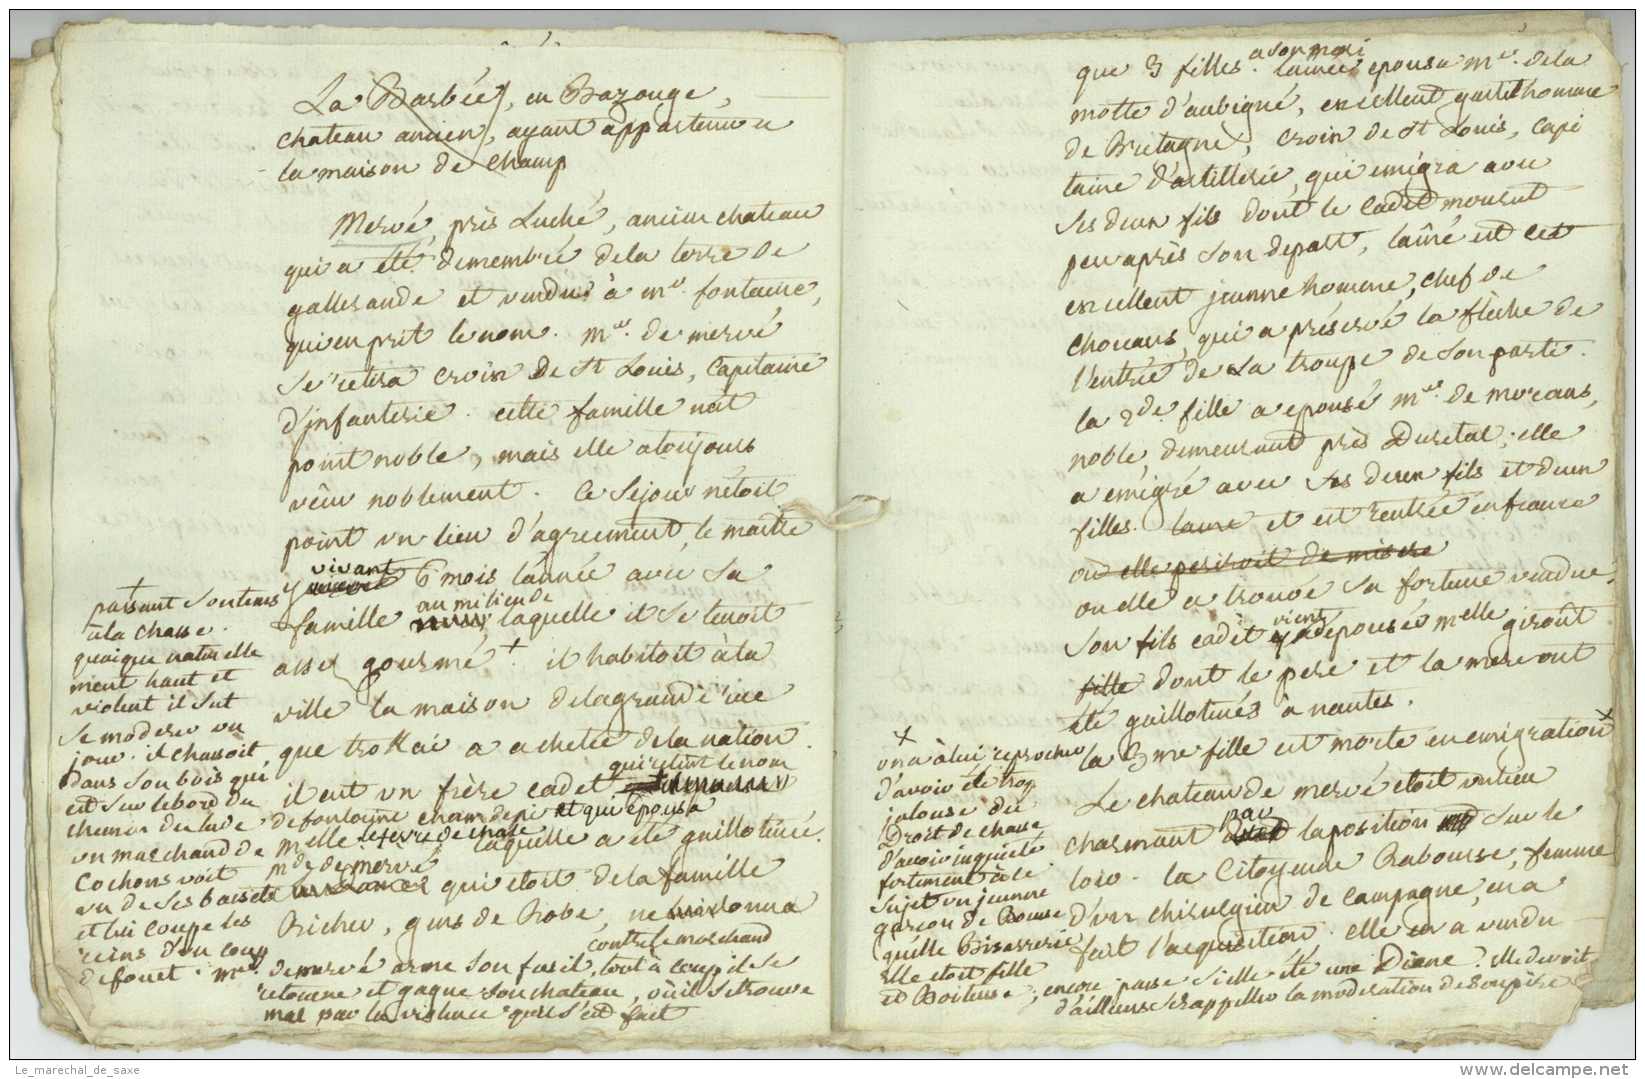 La Barbée, en Bazouge,
chateau ancien, ayant appartenu a
la maison de champ
Mervé, près Luché, ancien chateau
qui a été demembré dela terre de
gallerande et vendu à mr. fontaine,
qui en prit le nom. mr. de mervé
se retira croix de St Louis, Capitaine
d'jnfanterie. cette famille n'est
point noble, mais elle a toujours
vécu noblement. Ce Sejour n'étoit
point un lieu d'agreement, le maitre
y vivant 6 mois l'année avec sa
famille au milieu de laquelle il se tenoit
assez gourmé +. il habitoit à la
ville la maison de la grande rue
que trottai a achetée dela nation.
il eut un frère cadet qui retint le nom
de fontaine chamdepi et qui épousa
melle. lefevre de chale laquelle a été guillotinée.
mde de mervé qui etoit de la famille
Richer, gens de Robe, ne donna
+
passant son tems
à la chasse.
quoique naturelle
ment haut et
violent il sut
se moderer un
jour. il chassoit
dans son bois qui
est sur le bord du
chemin du lude
un marchand de
cochons voit
un de ses bassets
et lui coupe les
reins d'un coup
de fouet. mr. de mervé arme son fusil contre le marchand, tout à coup il se
retourne et gagne son chateau, où il se trouve
mal par la violence qu'il s'est fait
que 3 filles. a son mari l'ainée epousa mr. dela
motte d'aubigné, excellent gentilhomme
de Bretagne, croix de St Louis, capi
taine d'artillerie, qui emigra avec
ses deux fils dont le cadet mourut
peu après son depart, l'aîné est cet
excellent jeunne homme, chef de
chouans, qui a préservé la flèche de
l'entrée de la troupe de son parti.
la 2de. fille a epousé mr. de moreans,
noble, demeurant près Duretal, elle
a emigré avec ses deux fils et deux
filles. et est rentrée en france
où elle periroit de misere
ou elle a trouvé sa fortune vendue.
Son fils cadet vient d'epouser melle giroût
fille dont le pere et la mere ont
été guillotinés à nantes.
la 3me fille est morte en emigration x
Le chateau de mervé étoit un lieu
charmant par la position sur le
loir. la Citoyenne Rabourse, femme
d'un chirurgien de campagne, en a
fait l'acquisition. elle en a vendu
x
on a à lui reprocher
d'avoir été trop
jalouse du
Droit de chasse
d'avoir inquiété
fortement à ce
sujet un jeunne
garçon de Bousse
qu'elle
elle etoit fille
et Boiteuse, encore passe si elle eut été une Diane? elle devoit
d'ailleurs se rappeller la moderation de son père
Le_marechal_de_saxe
www.delcampe.net